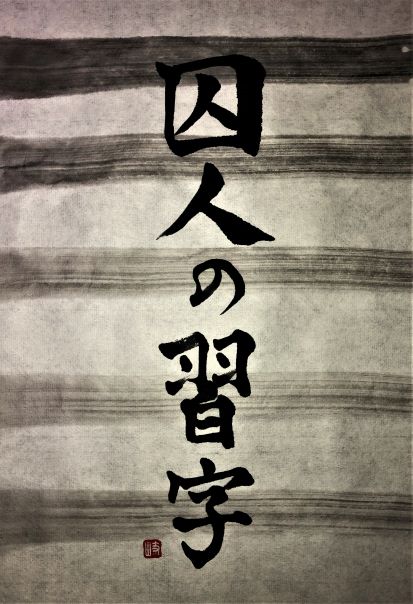 囚人の習字